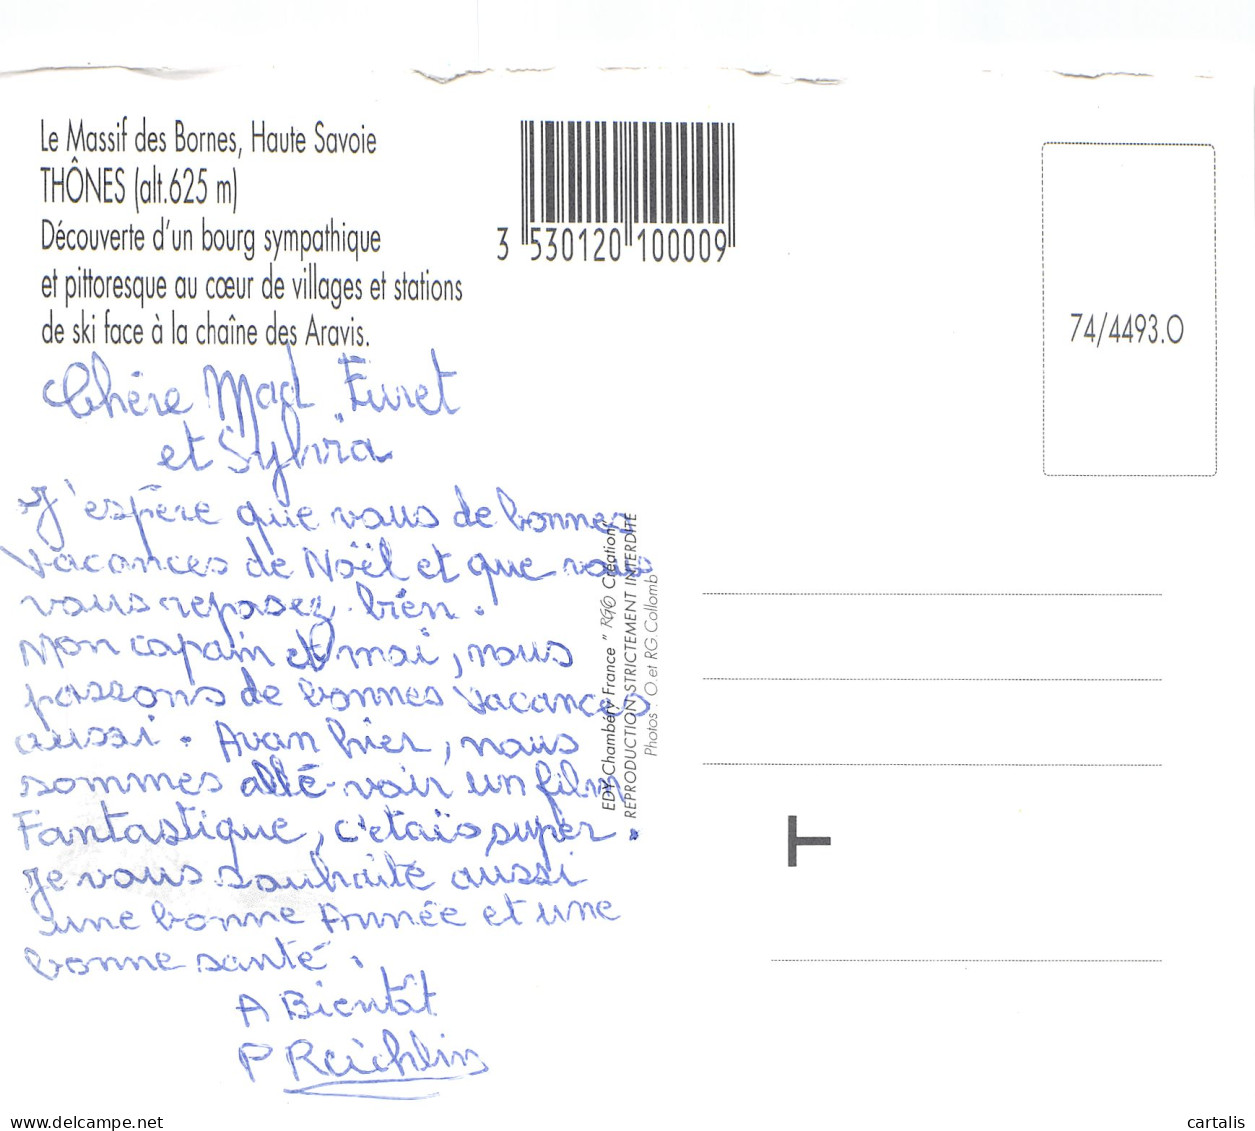 Le Massif des Bornes, Haute Savoie
THÔNES (alt.625 m)
Découverte d'un bourg sympathique
et pittoresque au cœur de villages et stations
de ski face à la chaîne des Aravis.
3 530120 100009
74/4493.O
Chère Mad Furet
et Sylvia
J'espère que vous de bonnes
vacances de Noël et que vous
vous reposez bien.
Mon copain et moi, nous
passons de bonnes vacances
aussi. Avan hier, nous
sommes allé voir un film
Fantastique, c'etais super.
Je vous souhaite aussi
une bonne Année et une
bonne santé.
A Bientôt
P
EDY Chambéry France " RGO Créations"
REPRODUCTION STRICTEMENT INTERDITE
Photos : O. et RG.Collomb
T
delcampe.net
cartalis